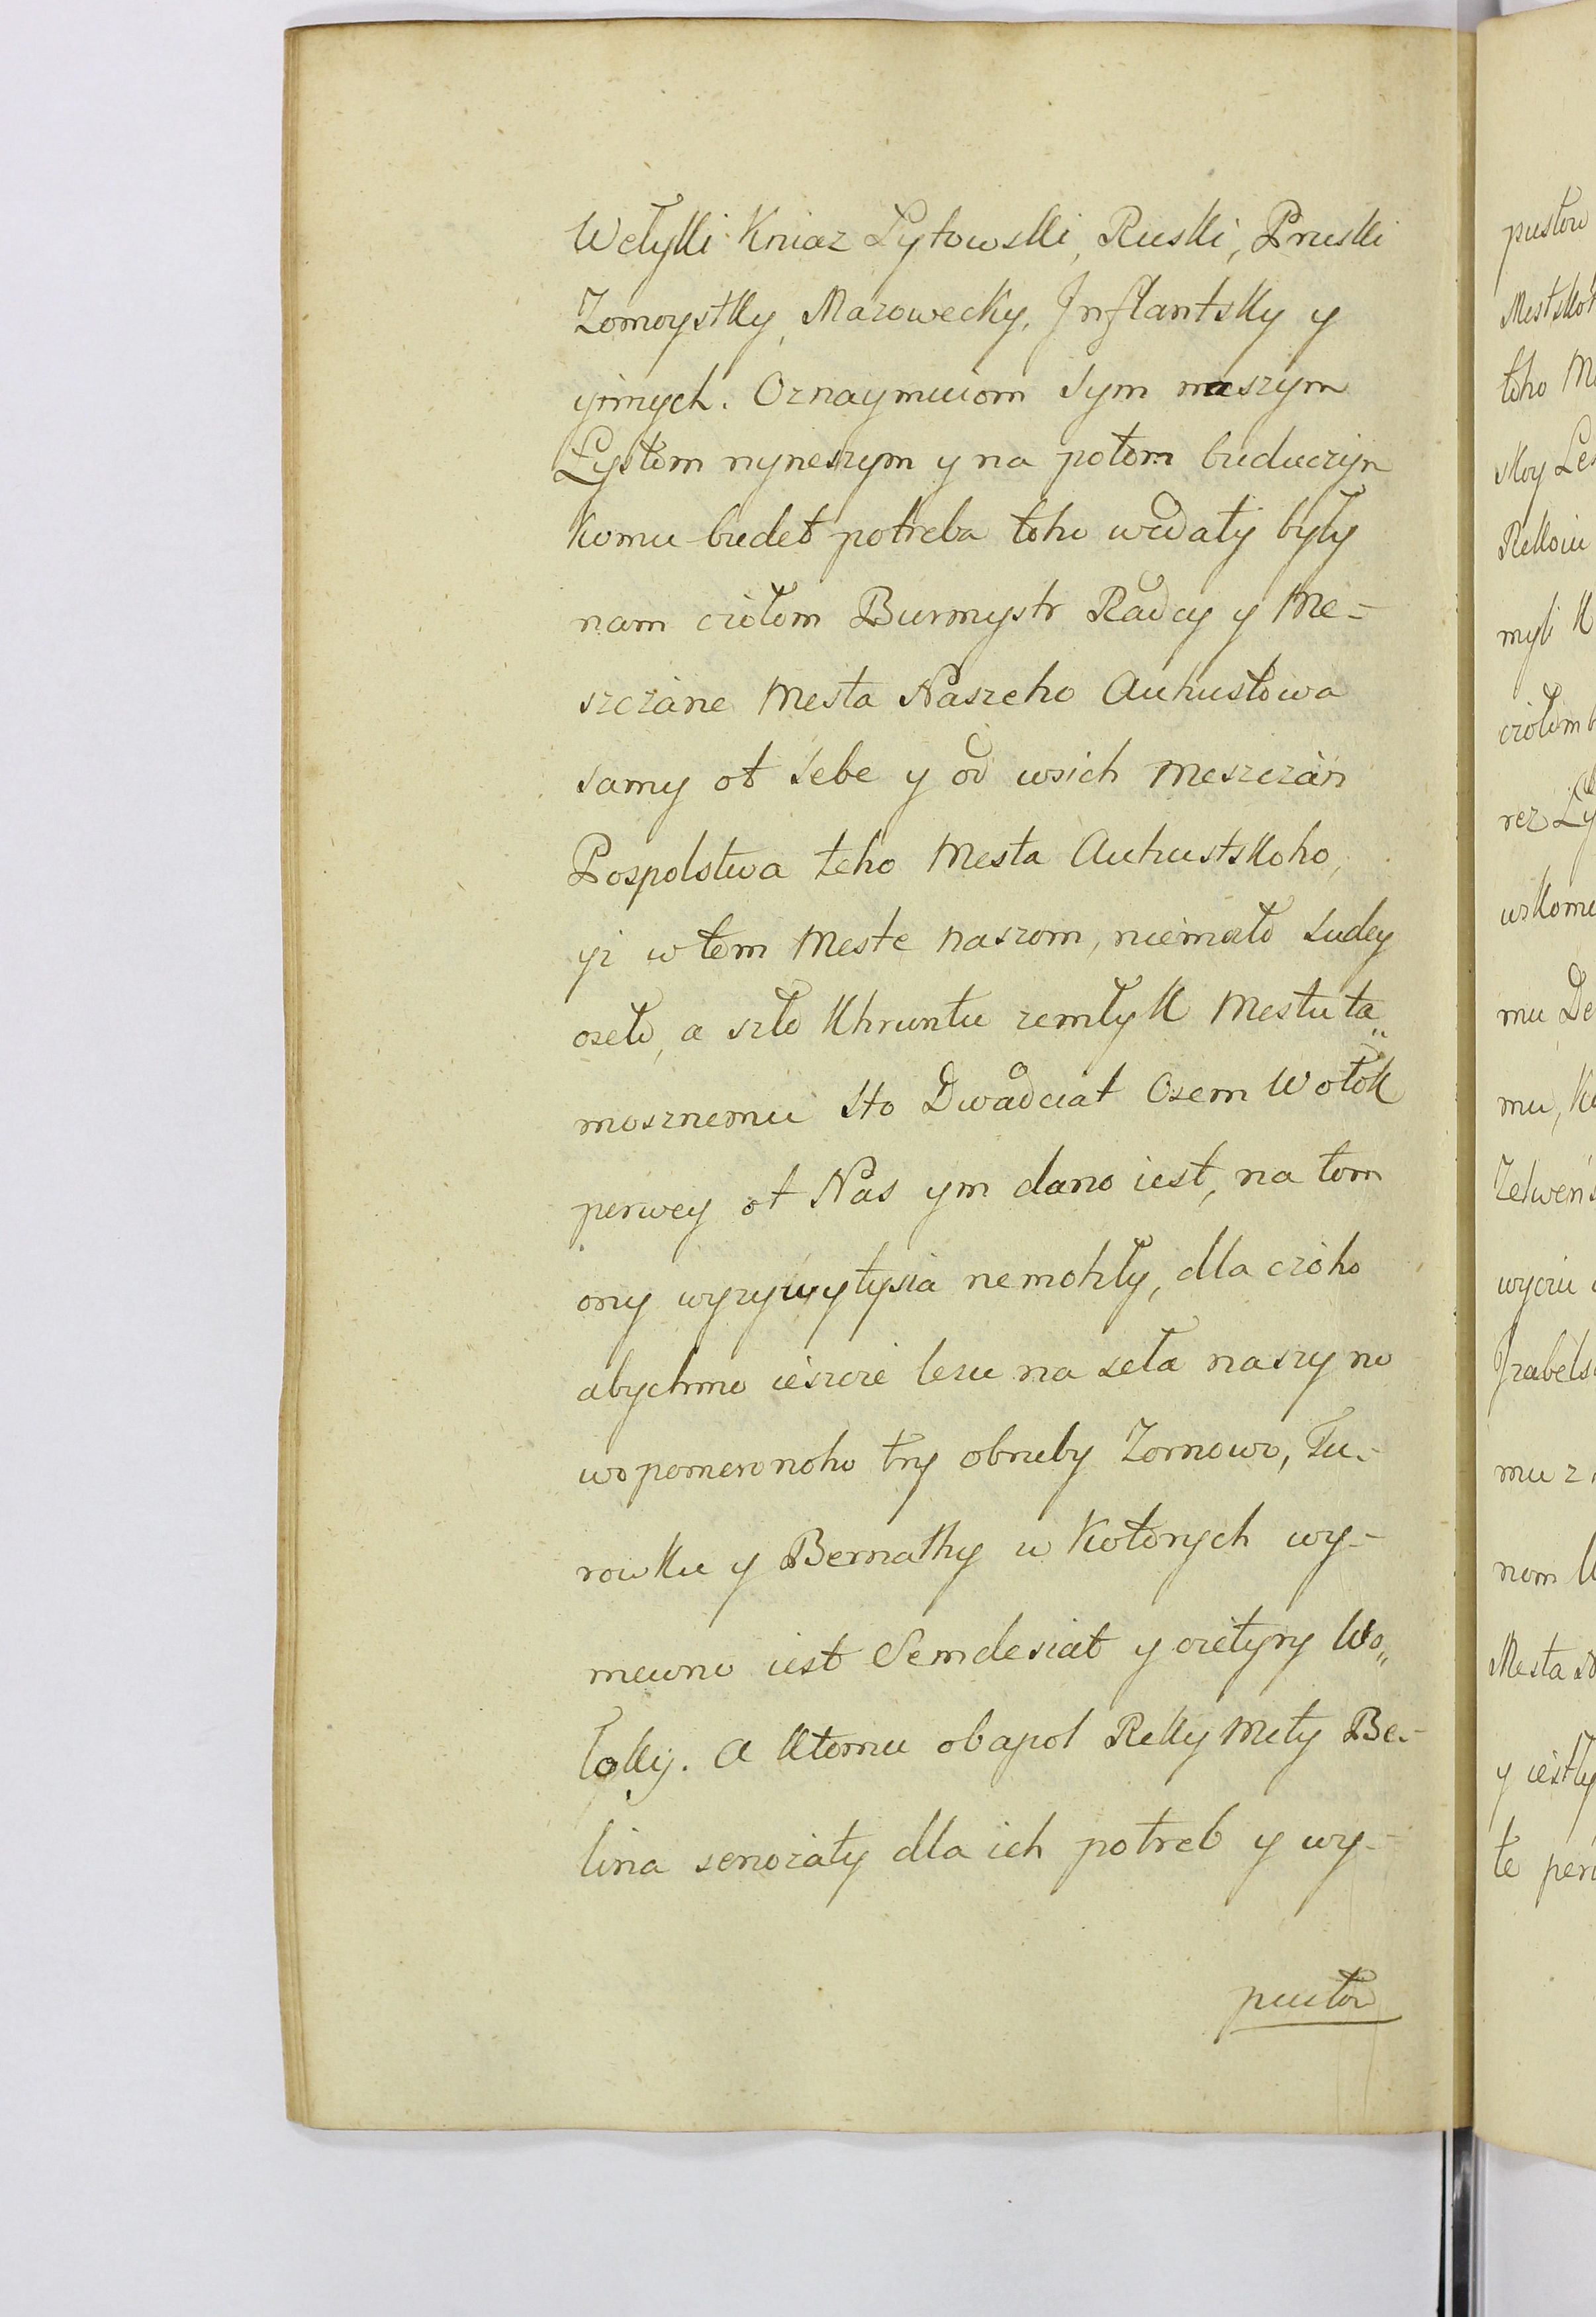 Wełykki Kniaz Lytowskki, Ruskki, Pruskki
Zomoystkky, Mazowecky, Inflantskky y
yinnych. Oznaymuiom sym naszym
Lystom nyneszym y na potom buduczym
komu budet potreba toho wedaty były
nam czołom Burmystr Radcy y Me-
szczane Mesta Naszeho Auhustowa
samy ot sebe y od wsich meszczan
Pospolstwa teho Mesta Auhustskoho,
yż w tom Meste naszom, niemało ludey
oseło, a szto Khruntu zemły K Mestu ta„
mosznemu sto Dwadciat Osem Wołok
perwey ot Nas ym dano iest, na tom
ony wyzywytysia nemohły, dla czoho
abychmo ieszcze lesu na seła naszy no
wopomenonoho try obruby Zornowo, Tu-
rowkku y Bernatky w Kotorych wy-
meeno iest Semdesiat y czetyry Wo„
łokky. A Ktomu obapol Rekky Mety Be-
lina senożaty dla ich potreb y wy-
pustow
pustow
Mestskoh
toho Me
skoy Les
Rekkoiu
myli K
czołom b
rez Ly
wskomu
mu De
mu, Ko
Zelwens
wyciu
Izabels
mu z
nom
Mesta N
y iestly
te perw